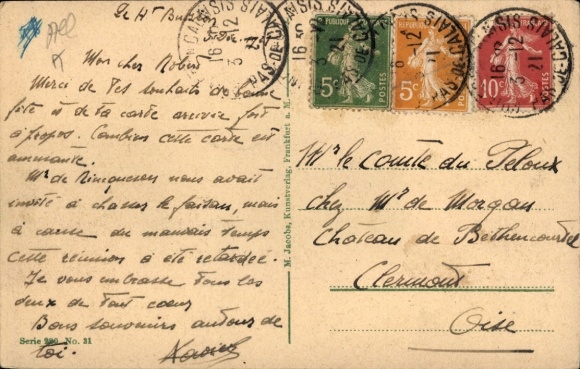 Le Ht Buis
Mon cher Robert
Merci de tes souhaits de bonne
fête et de ta carte arrivée fort
à propos. Combien cette carte est
amusante.
Mr de nous avait
invité à chasser le faisan, mais
à cause du mauvais temps
cette réunion a été retardée.
Je vous embrasse tous les
deux de tout cœur
Bons souvenirs autour de
toi. Xavier
Serie 290 No. 31
M. Jacobs, Kunstverlag, Frankfurt a. M.
PAS-DE-CALAIS
16 3-12 21
5c POSTES
5c POSTES
10c POSTES
Mr le comte du Peloux
chez Mr de Morgan
Château de Béthencourtel
Clermont
Oise